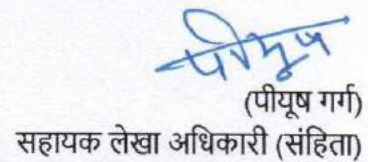 पीयूष
(पीयूष गर्ग)
सहायक लेखा अधिकारी (संहिता)